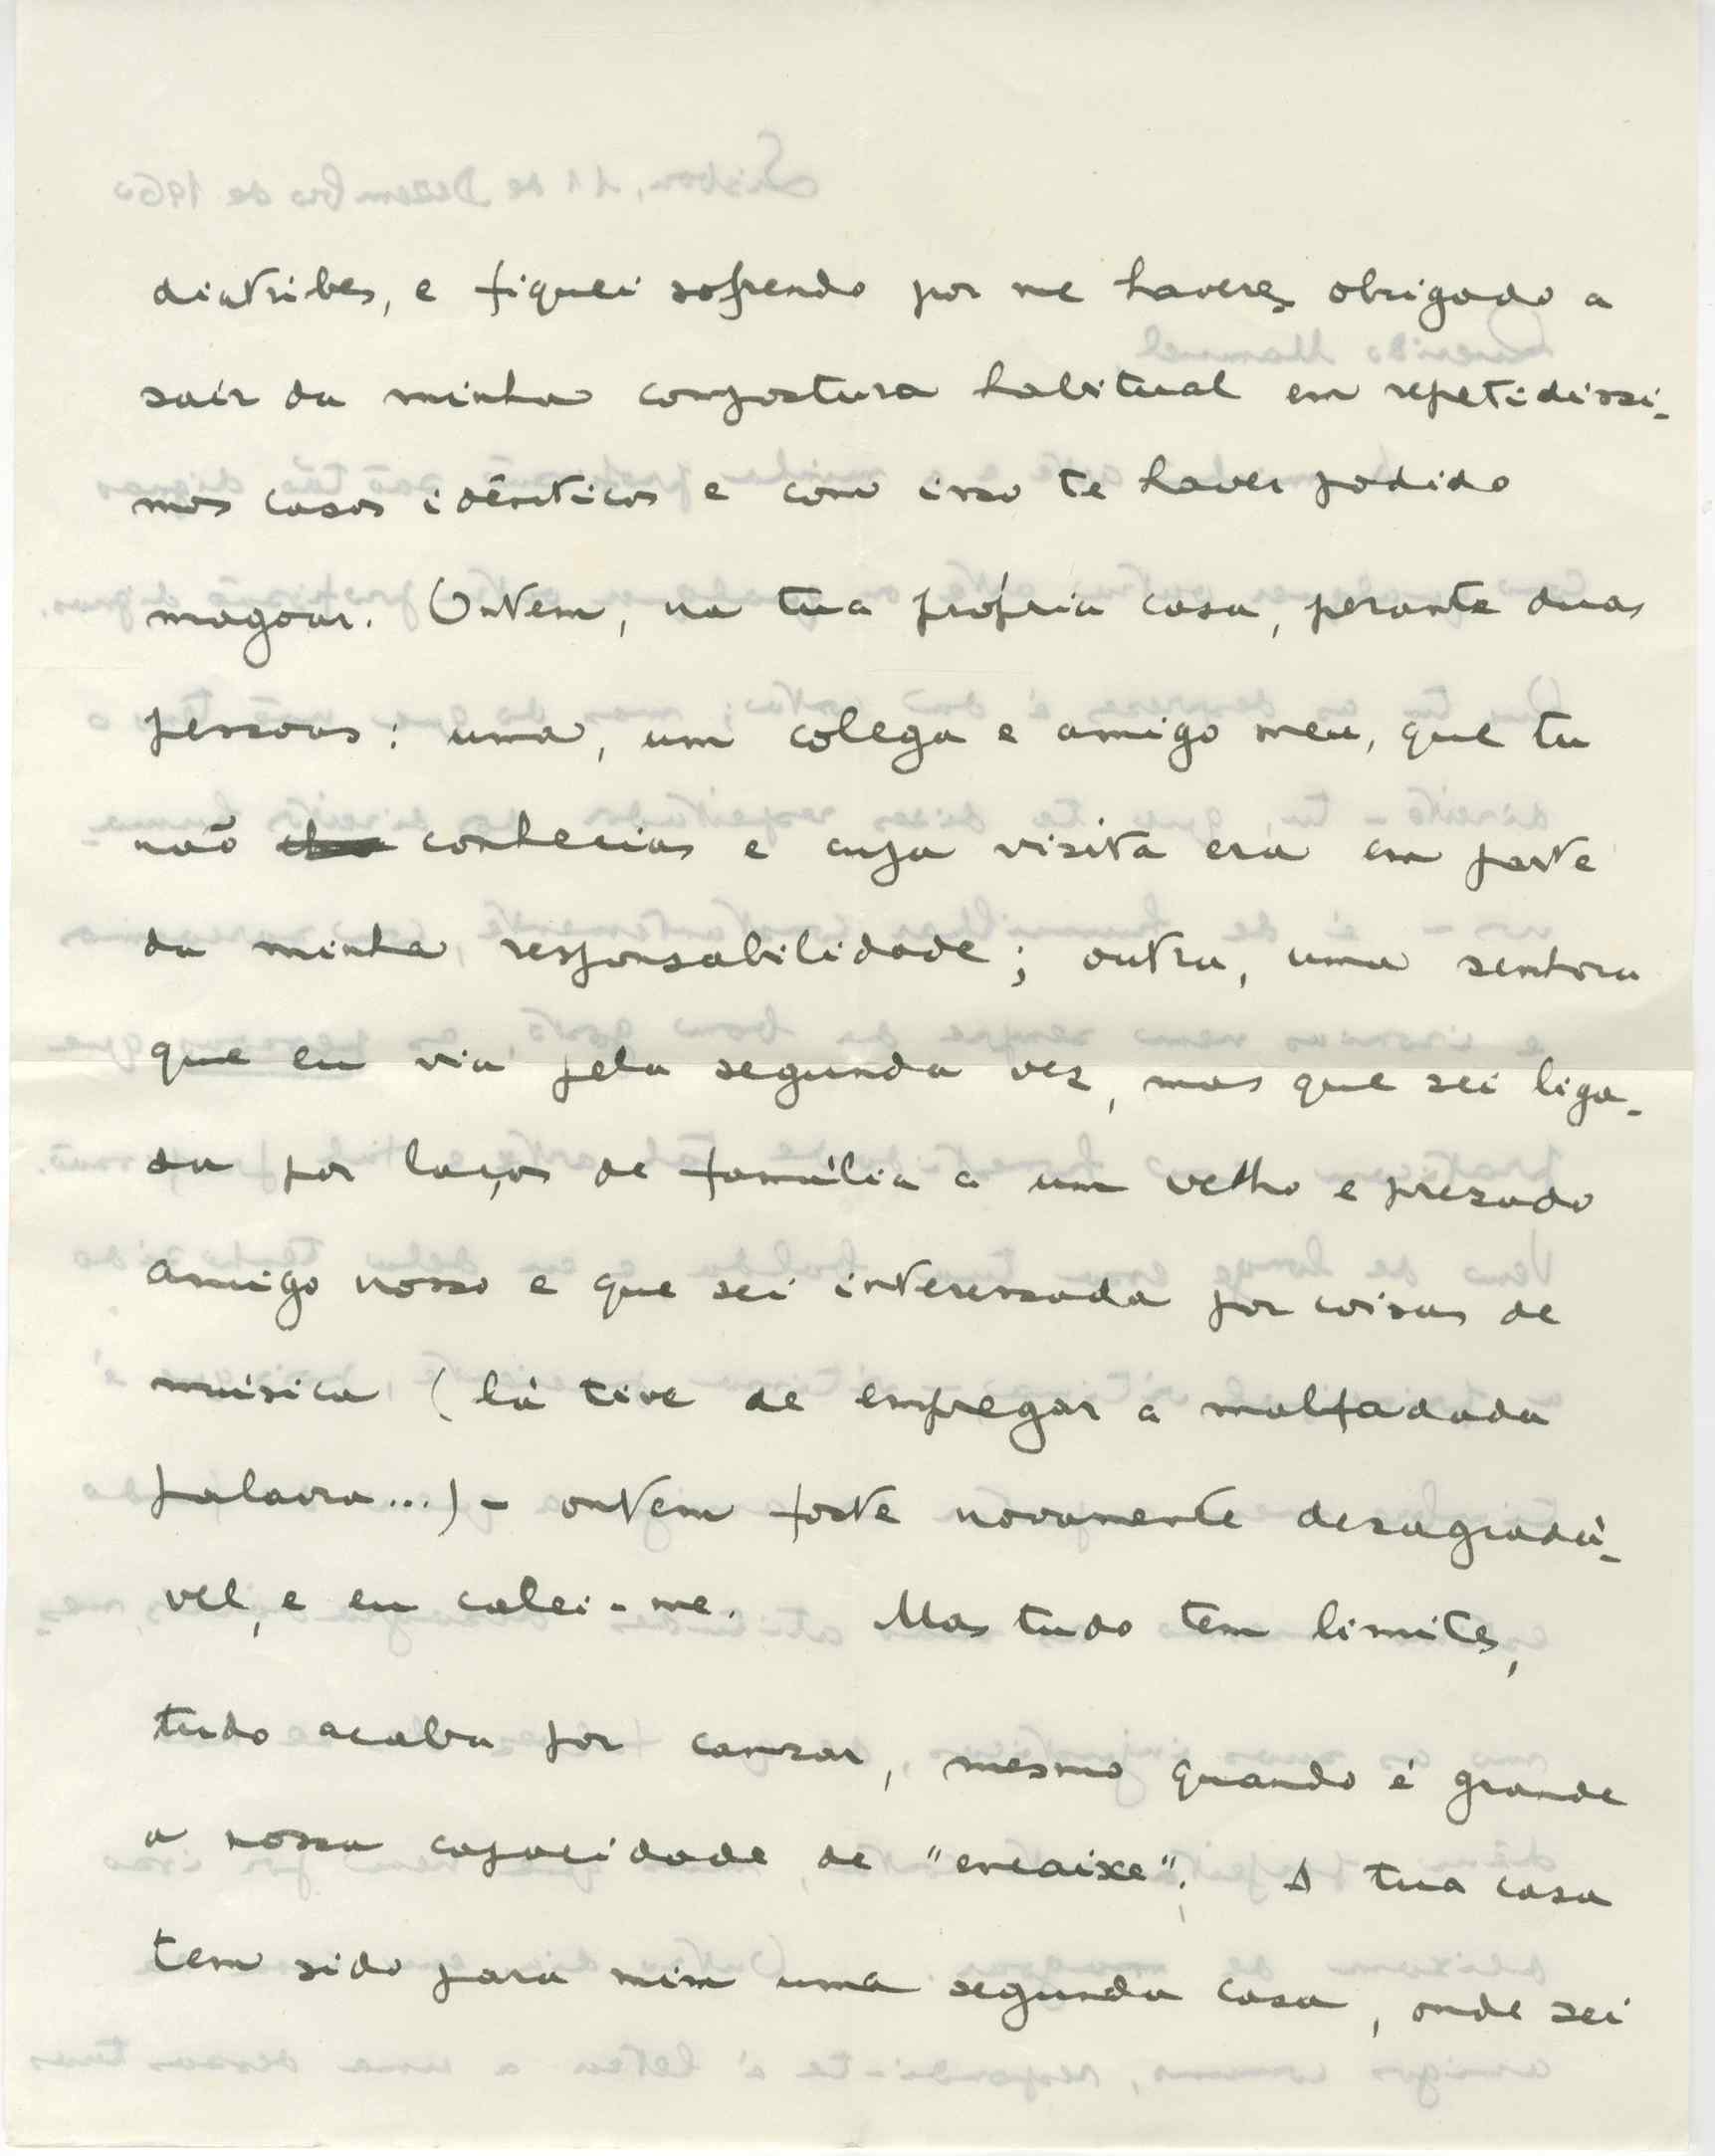 diatribes, e fiquei sofrendo por me haveres obrigado a
sair da minha compostura habitual em repetidissi-
mos casos idênticos e com isso te haver podido
magoar. Ontem, na tua própria casa, perante duas
pessoas: uma, um colega e amigo meu, que tu
não conhecias e cuja visita era em parte
da minha responsabilidade; outra, uma senhora
que eu via pela segunda vez, mas que sei liga-
da por laços de família a um velho e prezado
amigo nosso e que sei interessada por coisas de
música (lá tive de empregar a malfadada
palavra...) - ontem foste novamente desagradá-
vel, e eu calei-me. Mas tudo tem limites,
tudo acaba por cansar, mesmo quando é grande
a nossa capacidade de "encaixe". A tua casa
tem sido para mim uma segunda casa, onde sei